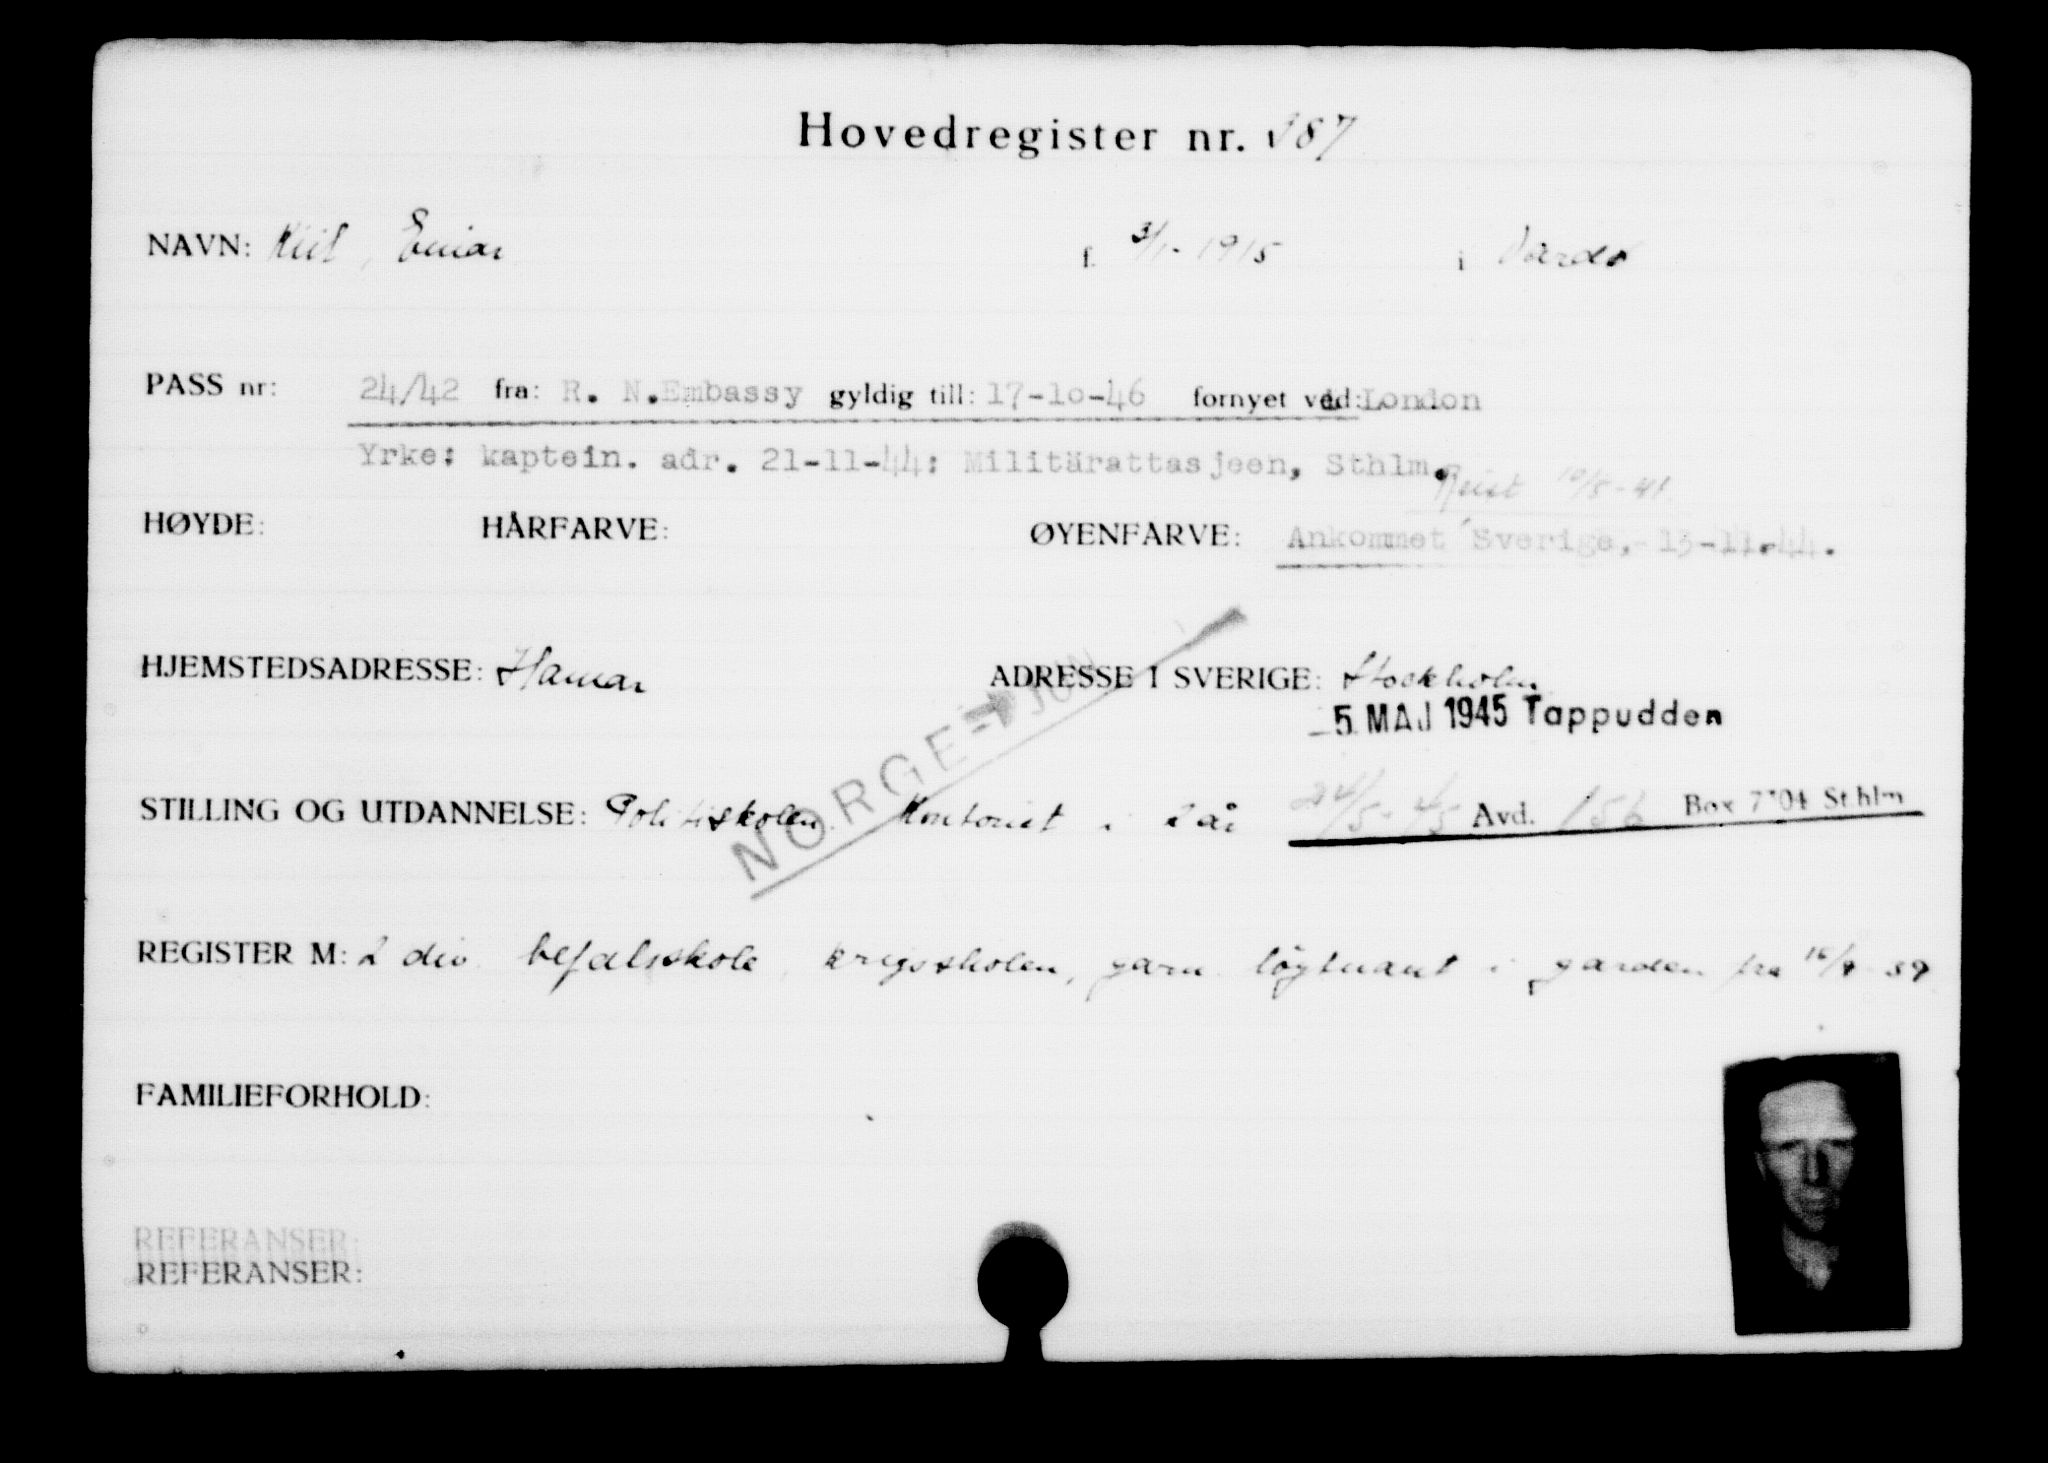 Hovedregister nr. 387
NAVN: Kiil, Einar f. 3/1-1915 i Vardø
PASS nr: 24/42 fra: R. N.Embassy gyldig till: 17-10-46 fornyet ved: London
Yrke: kaptein. adr. 21-11-44: Militärattasjeen, Sthlm.
Reist 10/5-41
HØYDE: HÅRFARVE: ØYENFARVE: Ankommet Sverige, 13-11-44.
HJEMSTEDSADRESSE: Hamar ADRESSE I SVERIGE: Stockholm
5 MAJ 1945 Tappudden
NORGE - JUN
STILLING OG UTDANNELSE: Politiskolen. Kontorist i 2 år 24/5-45 Avd. 156 Box 7704 Sthlm
REGISTER M: 2 div. befalsskole, krigsskolen, garn. løytnant i garden fra 39
FAMILIEFORHOLD:
REFERANSER:
REFERANSER: